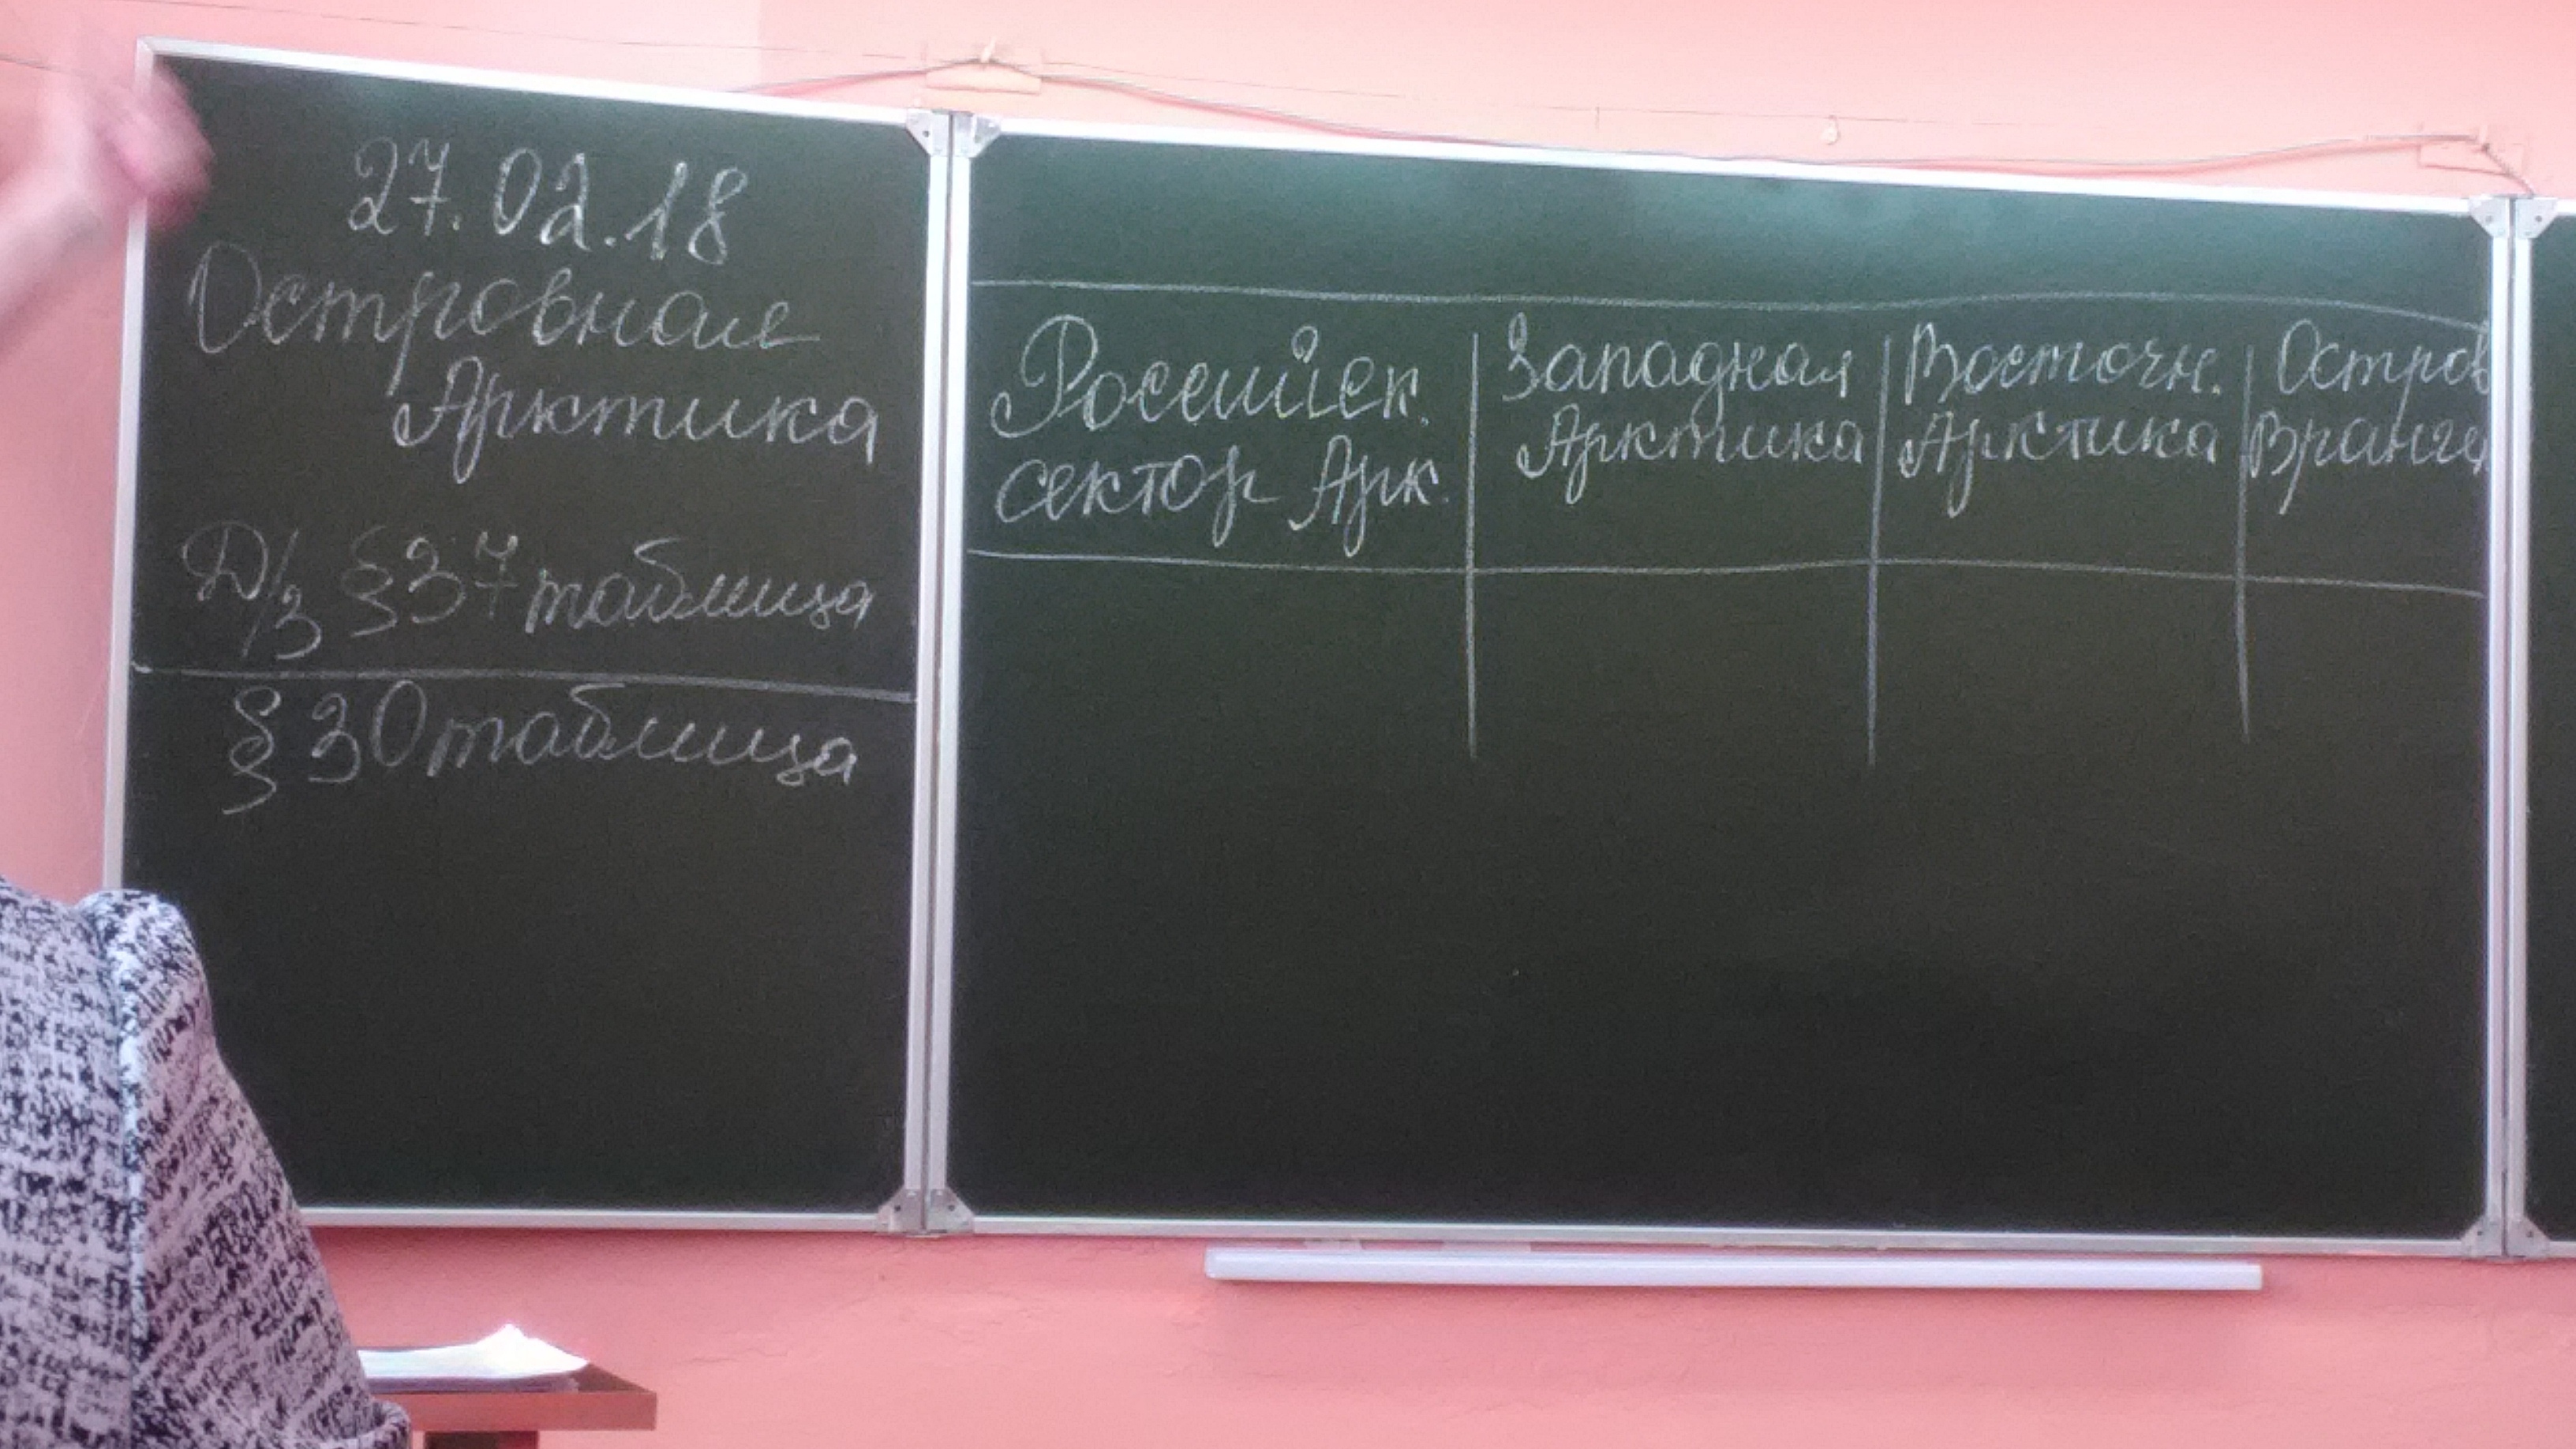 27.02.18
Островная
Арктика
Д/з §37 таблица
§30 таблица
Российск.
сектор Арк.
Западная
Арктика
Восточн.
Арктика
Остров
Вранге